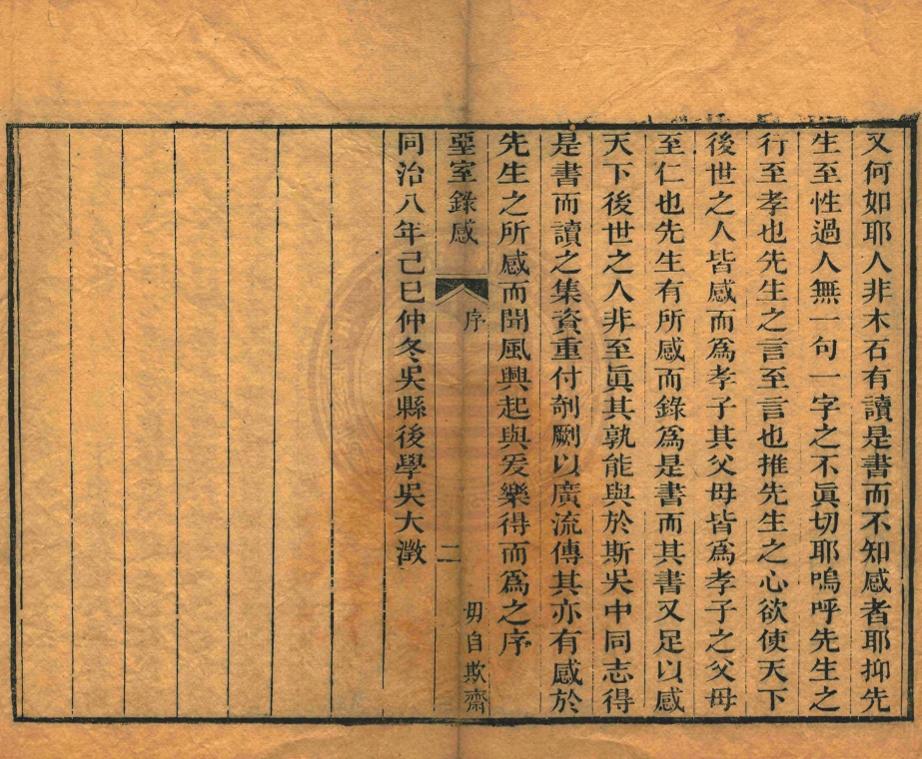 又何如耶人非木石有讀是書而不知感者耶抑先
生至性過人無一句一字之不眞切耶嗚呼先生之
行至孝也先生之言至言也推先生之心欲使天下
後世之人皆感而爲孝子其父母皆爲孝子之父母
至仁也先生有所感而錄爲是書而其書又足以感
天下後世之人非至眞其孰能與於斯吴中同志得
是書而讀之集資重付剞劂以廣流傳其亦有感於
先生之所感而聞風興起與爰樂得而爲之序
堊室錄感
序
二
毋自欺齋
同治八年己巳仲冬吴縣後學吴大澂